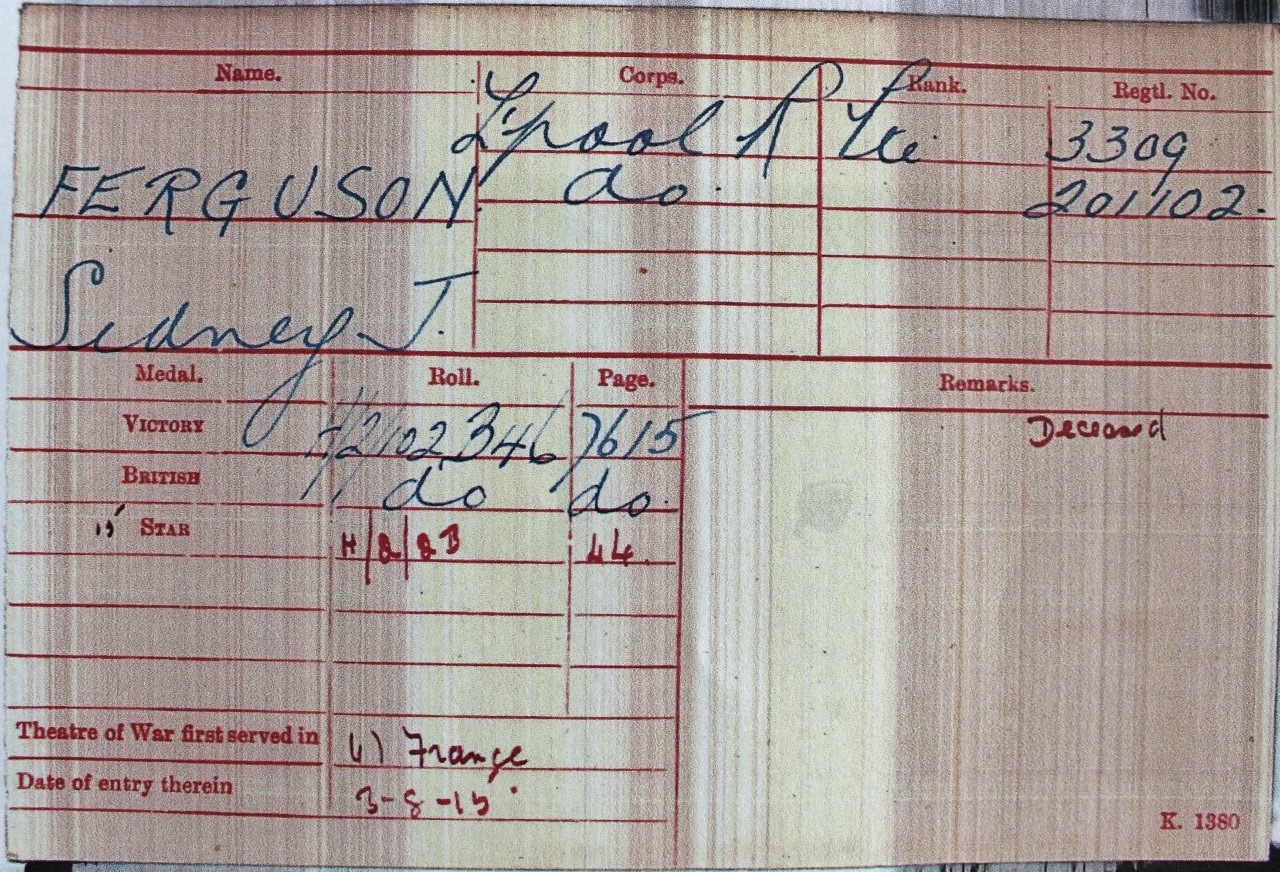 Name. Corps. Rank. Regtl. No.
L'pool R Pte. 3309
FERGUSON do. 201102.
Sidney J.
Medal. Roll. Page. Remarks.
VICTORY H/2/102B46 7615 Deceased
BRITISH do do.
15 STAR H/2/2B 44.
Theatre of War first served in (1) France
Date of entry therein 3-8-15.
K. 1380